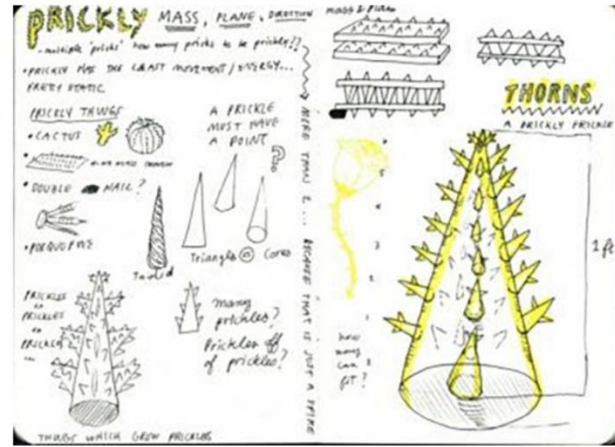 PRICKLY MASS, PLANE, DIRECTION
- multiple 'pricks' how many pricks to be prickly!?
• PRICKLY HAS THE LEAST MOVEMENT / ENERGY...
PRETTY STATIC
PRICKLY THINGS
• CACTUS
• DOUBLE NAIL?
• PORQUPINE
A PRICKLE
MUST HAVE
A POINT
?
Triangle vs Cones
PRICKLES
on
PRICKLES
on
PRICKLES
...
many
prickles?
Prickles off
of prickles?
THINGS WHICH GROW PRICKLES
MORE THAN 2 ... BECAUSE THAT IS JUST A SPIKE
MASS & PLANE
THORNS
A PRICKLY PRICKLE
6
5
4
3
2
1
how
many
can
fit?
1 ft